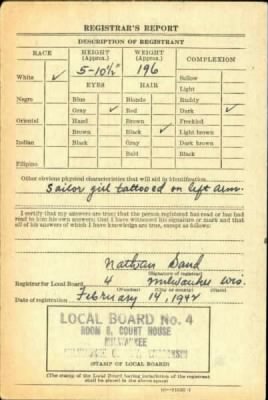 REGISTRAR'S REPORT
DESCRIPTION OF REGISTRANT
RACE HEIGHT (Approx.) WEIGHT (Approx.) COMPLEXION
White ✓ 5-10½" 196 Sallow
Light
EYES HAIR
Negro Blue Blonde Ruddy
Gray ✓ Red Dark ✓
Oriental Hazel Brown Freckled
Brown Black ✓ Light brown
Indian Black Gray Dark brown
Bald Black
Filipino
Other obvious physical characteristics that will aid in identification
Sailor girl tattooed on left arm.
I certify that my answers are true; that the person registered has read or has had
read to him his own answers; that I have witnessed his signature or mark and that
all of his answers of which I have knowledge are true, except as follows:
Nathan
(Signature of registrar)
Registrar for Local Board 4 Milwaukee Wis.
(Number) (City or county) (State)
Date of registration February 14, 1942
LOCAL BOARD No. 4
ROOM 8, COURT HOUSE
MILWAUKEE
(STAMP OF LOCAL BOARD)
(The stamp of the Local Board having jurisdiction of the registrant
shall be placed in the above space)